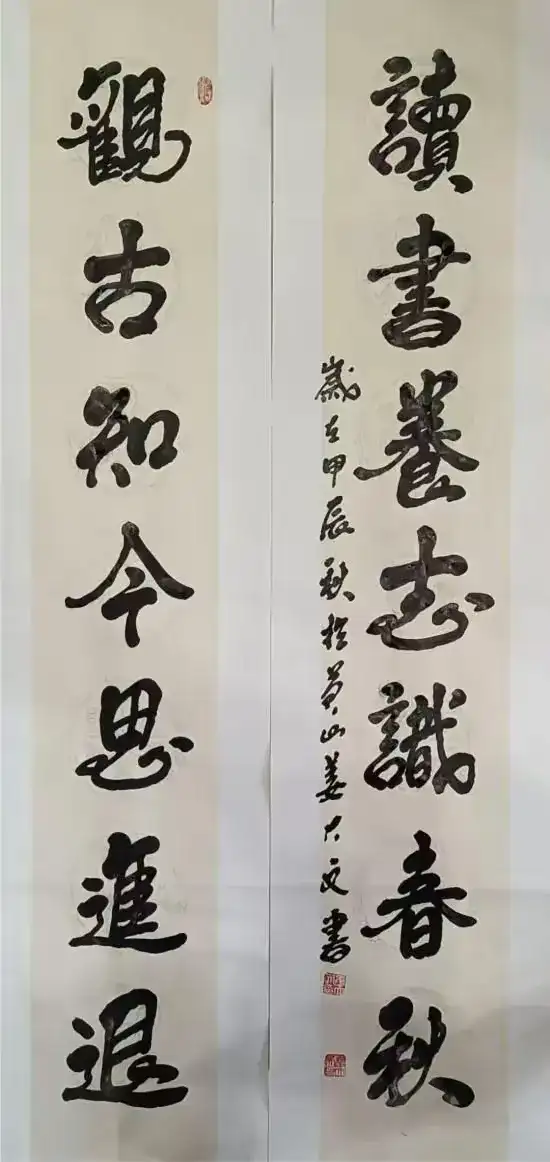 讀書養志識春秋
歲在甲辰秋於黃山姜大文書
觀古知今思進退